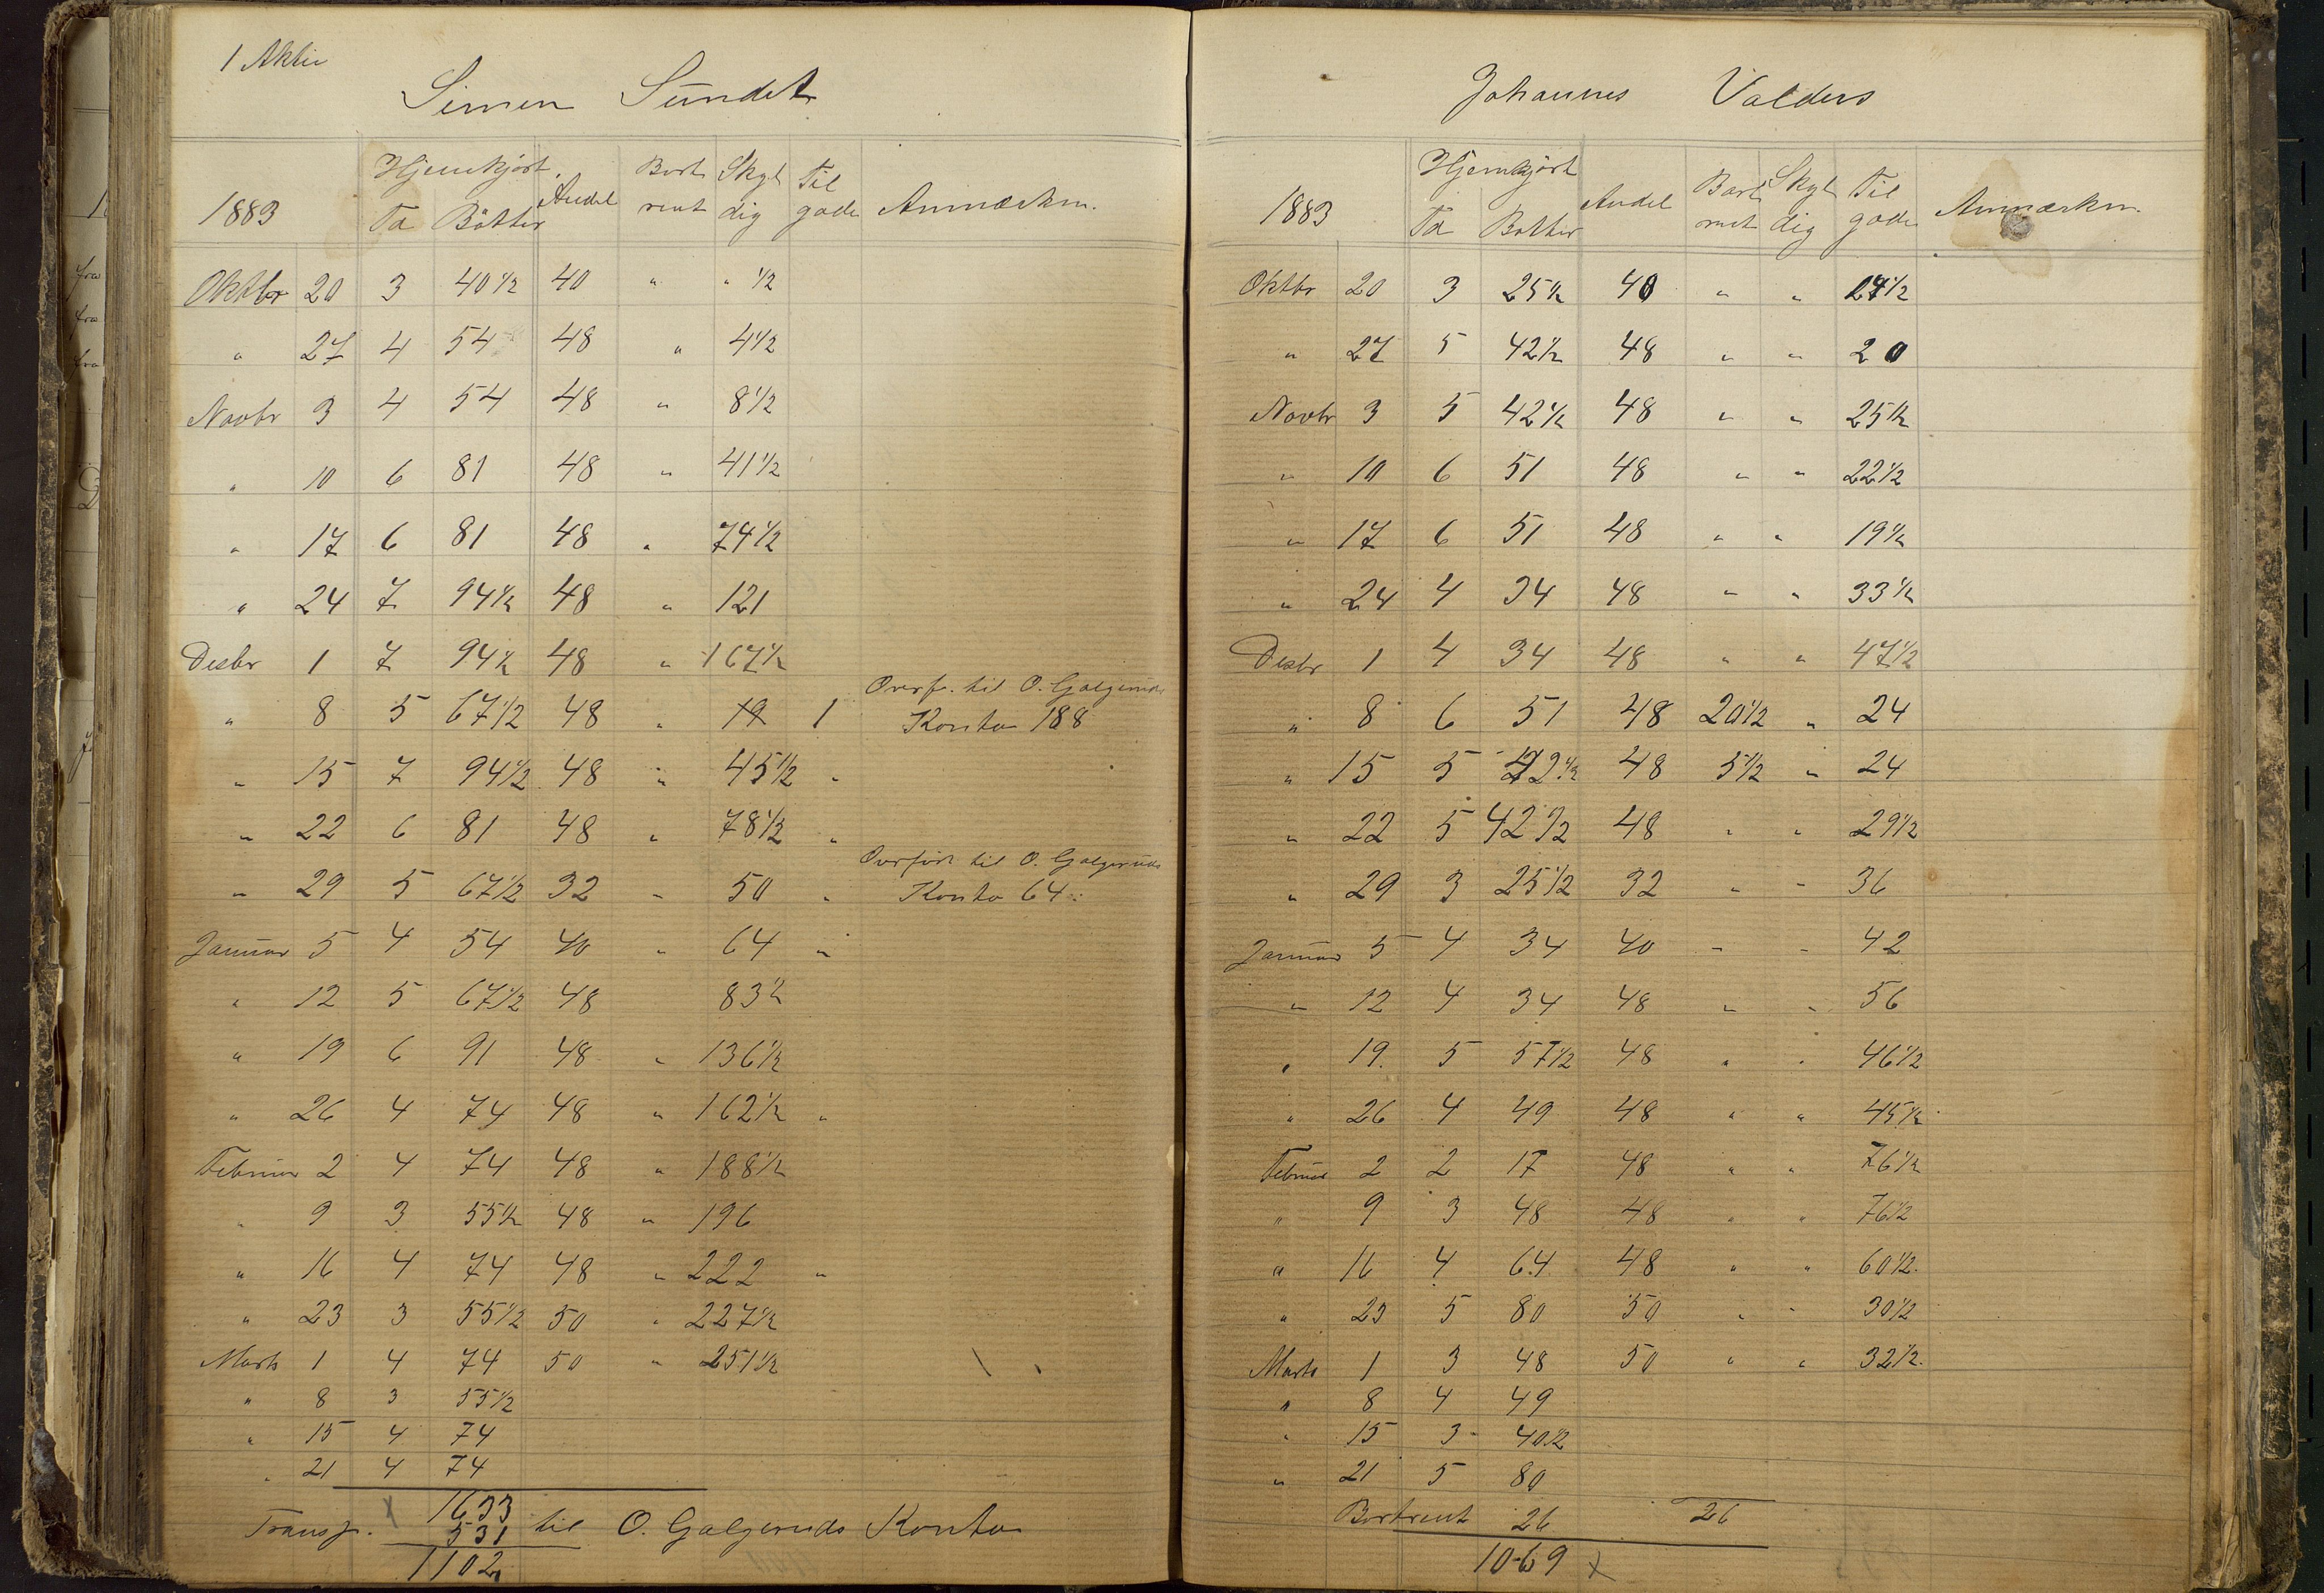 1 Aktie
Simen Sundet
1883 Hjemkjørt. Andel Bort Skyl Til Anmærkn.
Td Bøtter rent dig gode
Oktbr 20 3 40 1/2 40 " " 1/2
" 27 4 54 48 " 4 1/2
Novbr 3 4 54 48 " 8 1/2
" 10 6 81 48 " 41 1/2
" 17 6 81 48 " 74 1/2
" 24 7 94 1/2 48 " 121
Desbr 1 7 94 1/2 48 " 167 1/2
Overf. til O. Galgeruds
" 8 5 67 1/2 48 " 19 1 Konto 188
" 15 7 94 1/2 48 " 45 1/2 "
" 22 6 81 48 " 78 1/2 "
Overført til O. Galgeruds
" 29 5 67 1/2 32 " 50 " Konto 64
Januar 5 4 54 40 " 64 "
" 12 5 67 1/2 48 83 1/2
" 19 6 91 48 " 136 1/2
" 26 4 74 48 " 162 1/2 "
Februar 2 4 74 48 " 188 1/2
" 9 3 55 1/2 48 " 196
" 16 4 74 48 " 222 "
" 23 3 55 1/2 50 " 227 1/2
Marts 1 4 74 50 " 251 1/2
" 8 3 55 1/2
" 15 4 74
" 21 4 74
x 1633
Transp. 531 til O. Galgeruds Konto
1102
Johannes Valders
1883 Hjemkjørt Andel Bort Skyl Til Anmærkn.
Td Bøtter rent dig gode
Oktbr 20 3 25 1/2 40 " " 14 1/2
" 27 5 42 1/2 48 " " 20
Novbr 3 5 42 1/2 48 " " 25 1/2
" 10 6 51 48 " " 22 1/2
" 17 6 51 48 " " 19 1/2
" 24 4 34 48 " " 33 1/2
Desbr 1 4 34 48 " " 47 1/2
" 8 6 51 48 20 1/2 " 24
" 15 5 42 1/2 48 5 1/2 " 24
" 22 5 42 1/2 48 " " 29 1/2
" 29 3 25 1/2 32 " " 36
Januar 5 4 34 40 " " 42
" 12 4 34 48 " " 56
" 19. 5 57 1/2 48 " " 46 1/2
" 26 4 49 48 " " 45 1/2
Februar 2 2 17 48 " " 76 1/2
" 9 3 48 48 " " 76 1/2
" 16 4 64 48 " " 60 1/2
" 23 5 80 50 " " 30 1/2
Marts 1 3 48 50 " " 32 1/2
" 8 4 49
" 15 3 40 1/2
" 21 5 80
Bortrent 26 26
1069 x